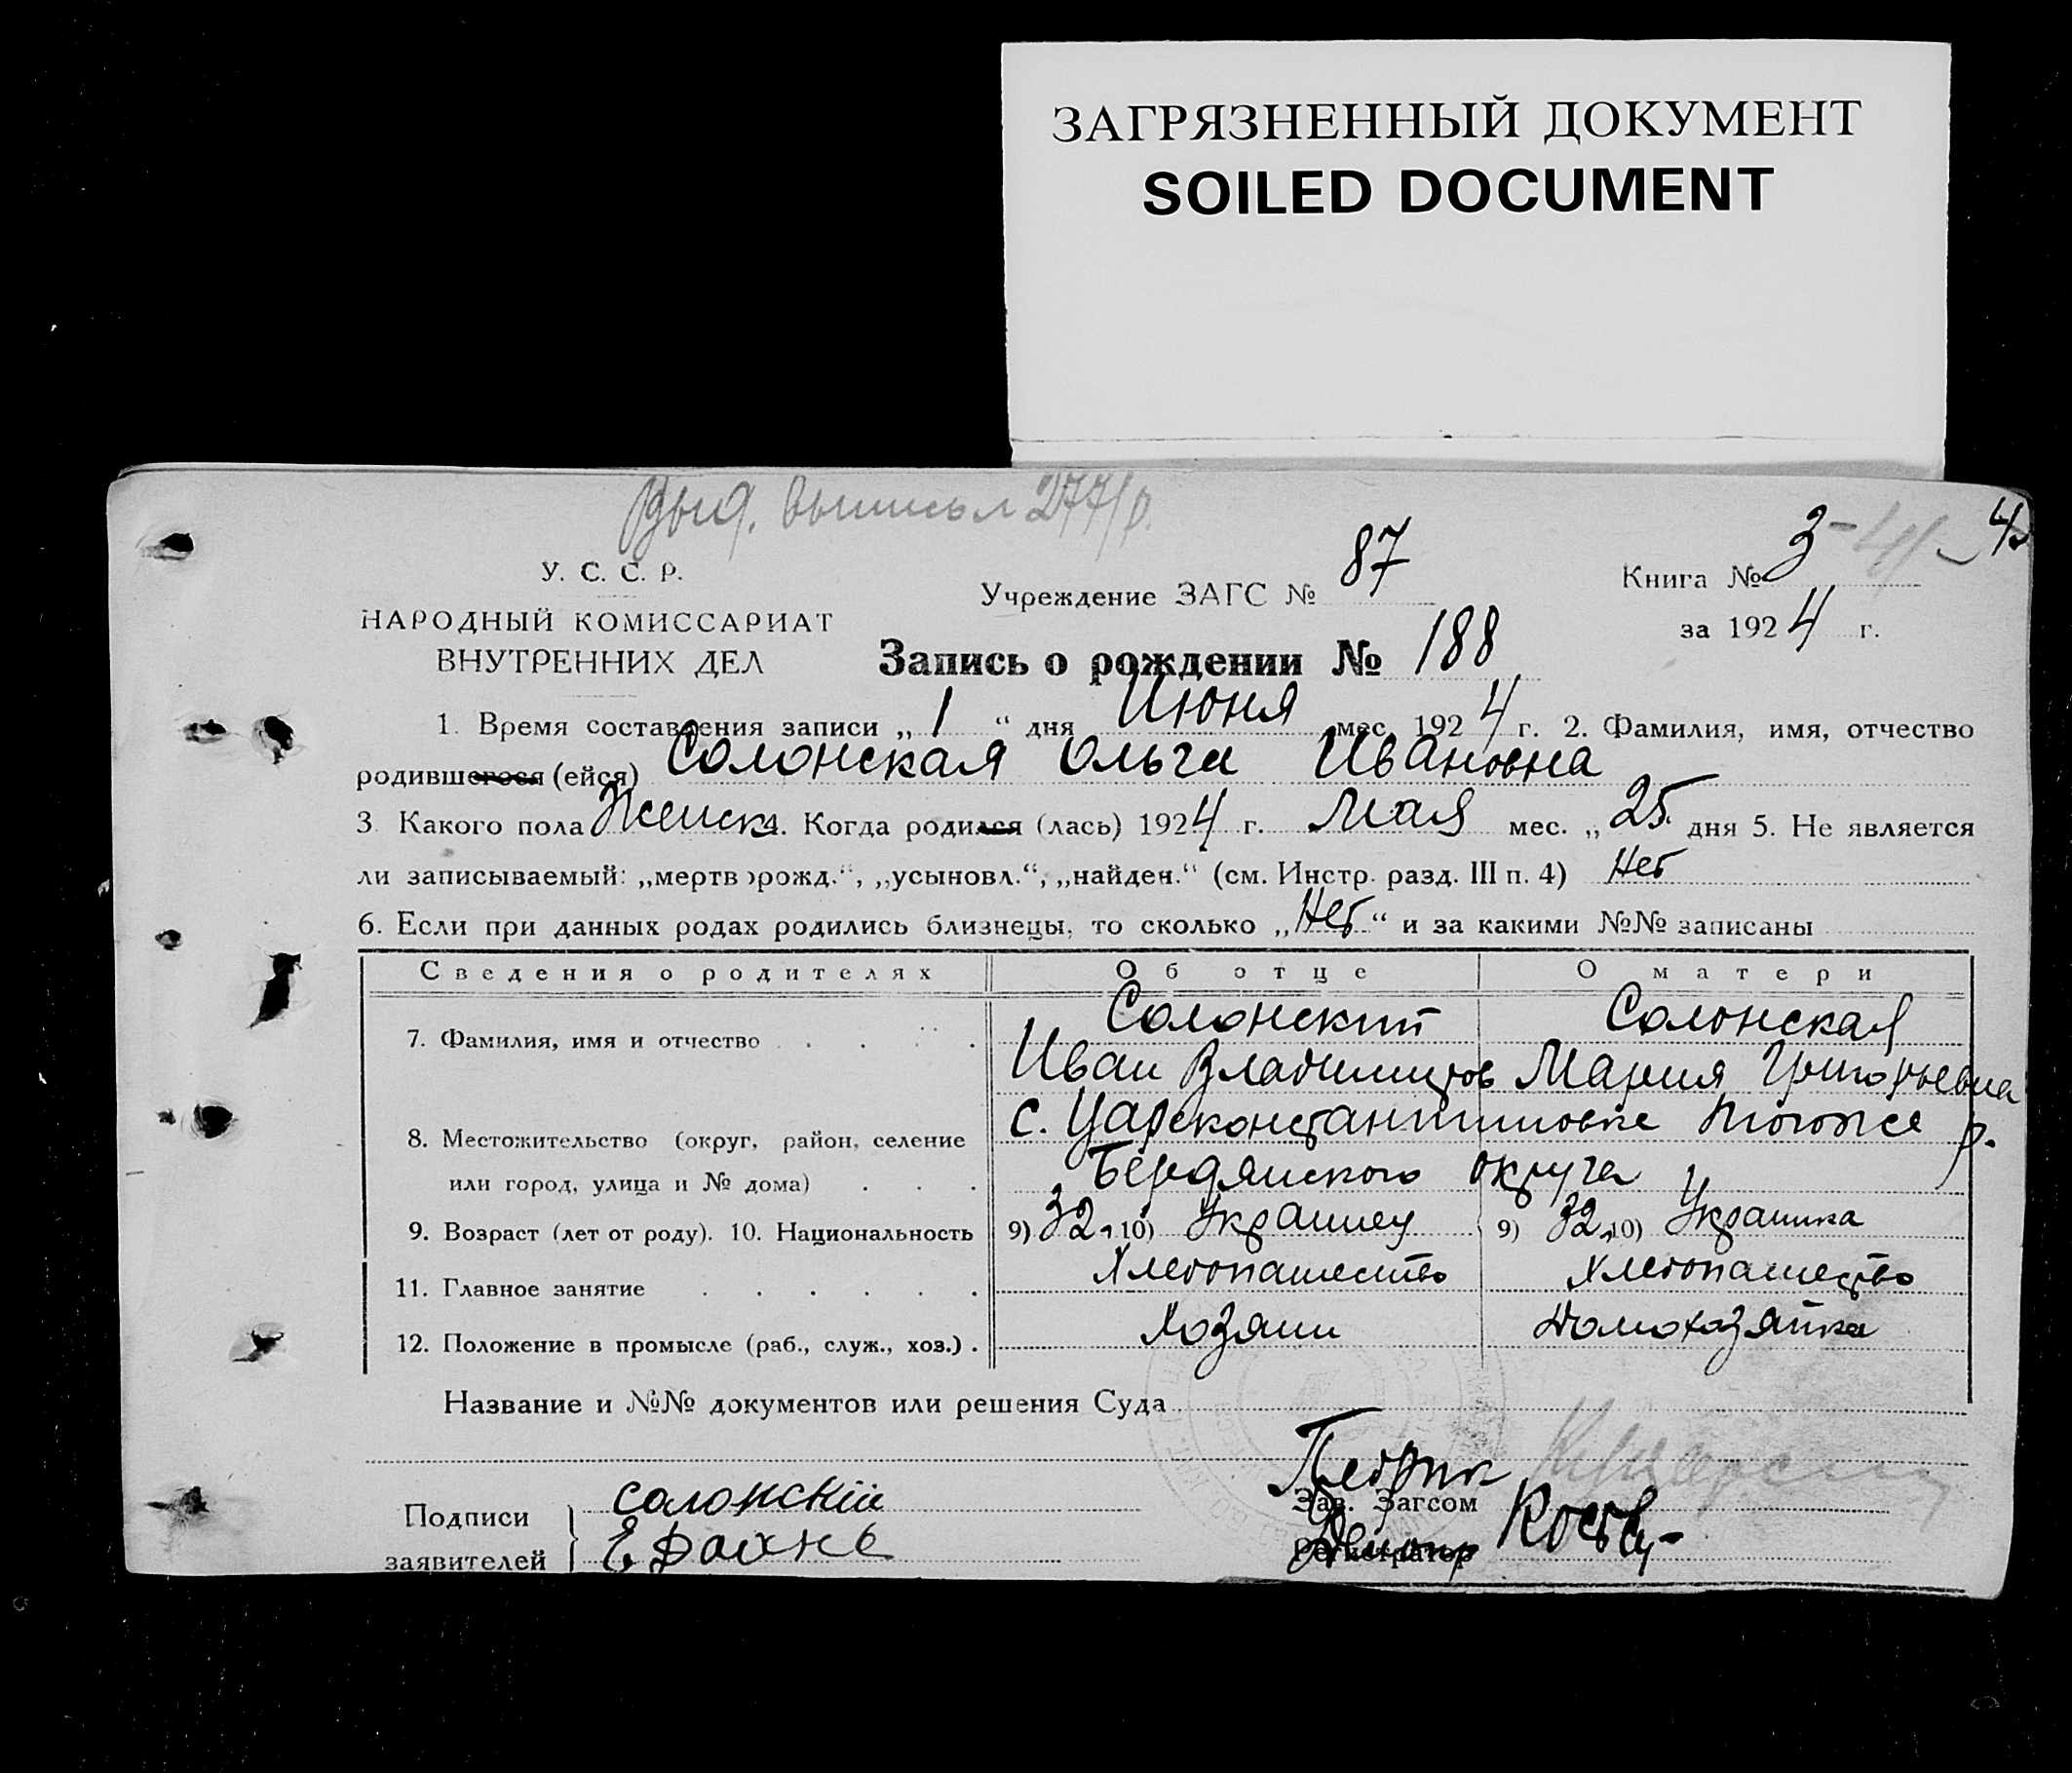 ЗАГРЯЗНЕННЫЙ ДОКУМЕНТ
SOILED DOCUMENT
Выд. 277/р.
У. С. С. Р.
НАРОДНЫЙ КОМИССАРИАТ
ВНУТРЕННИХ ДЕЛ
Учреждение ЗАГС № 87
Книга № 3
за 1924 г.
Запись о рождении № 188
1. Время составления записи „ 1 “ дня Июня мес. 1924 г. 2. Фамилия, имя, отчество
родившегося (ейся) Солонская Ольга Ивановна
3. Какого пола Женск 4. Когда родился (лась) 1924 г. Мая мес. „ 25 дня 5. Не является
ли записываемый: „мертворожд.“, „усыновл.“, „найден.“ (см. Инстр. разд. III п. 4) Нет
6. Если при данных родах родились близнецы, то сколько „Нет“ и за какими №№ записаны
Сведения о родителях Об отце О матери
7. Фамилия, имя и отчество Солонский Солонская
Иван Владимиров Мария Григорьевна
8. Местожительство (округ, район, селение с. Цареконстантиновке того же р.
или город, улица и № дома) Бердянского округа
9. Возраст (лет от роду). 10. Национальность 9) 32 10) Украинец 9) 32 10) Украинка
11. Главное занятие Хлебопашество Хлебопашество
12. Положение в промысле (раб., служ., хоз.) Хозяин Домохозяйка
Название и №№ документов или решения Суда
Подписи Солонскій
заявителей
Зав. Загсом
Регистратор